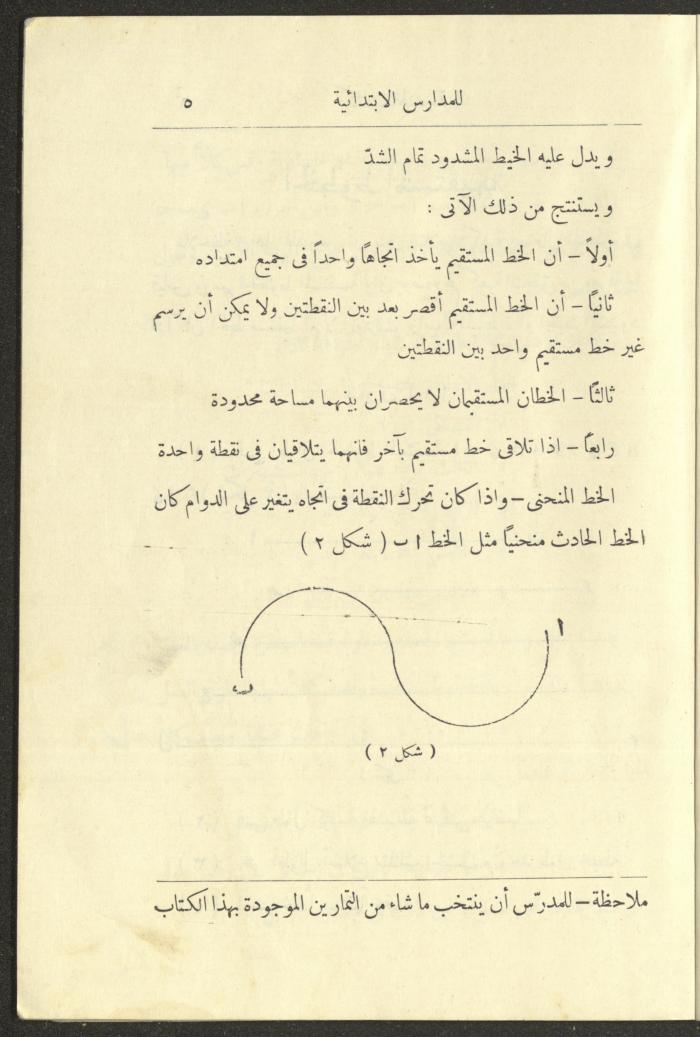 للمدارس الابتدائية ٥
ويدل عليه الخيط المشدود تمام الشدّ
ويستنتج من ذلك الآتى :
أولاً – أن الخط المستقيم يأخذ اتجاهاً واحداً فى جميع امتداده
ثانياً – أن الخط المستقيم أقصر بعد بين النقطتين ولا يمكن أن يرسم
غير خط مستقيم واحد بين النقطتين
ثالثاً – الخطان المستقيمان لا يحصران بينهما مساحة محدودة
رابعاً – اذا تلاقى خط مستقيم بآخر فانهما يتلاقيان فى نقطة واحدة
الخط المنحنى – واذا كان تحرك النقطة فى اتجاه يتغير على الدوام كان
الخط الحادث منحنياً مثل الخط ا ب ( شكل ٢ )
ا
ب
( شكل ٢ )
ملاحظة – للمدرّس أن ينتخب ما شاء من التمارين الموجودة بهذا الكتاب